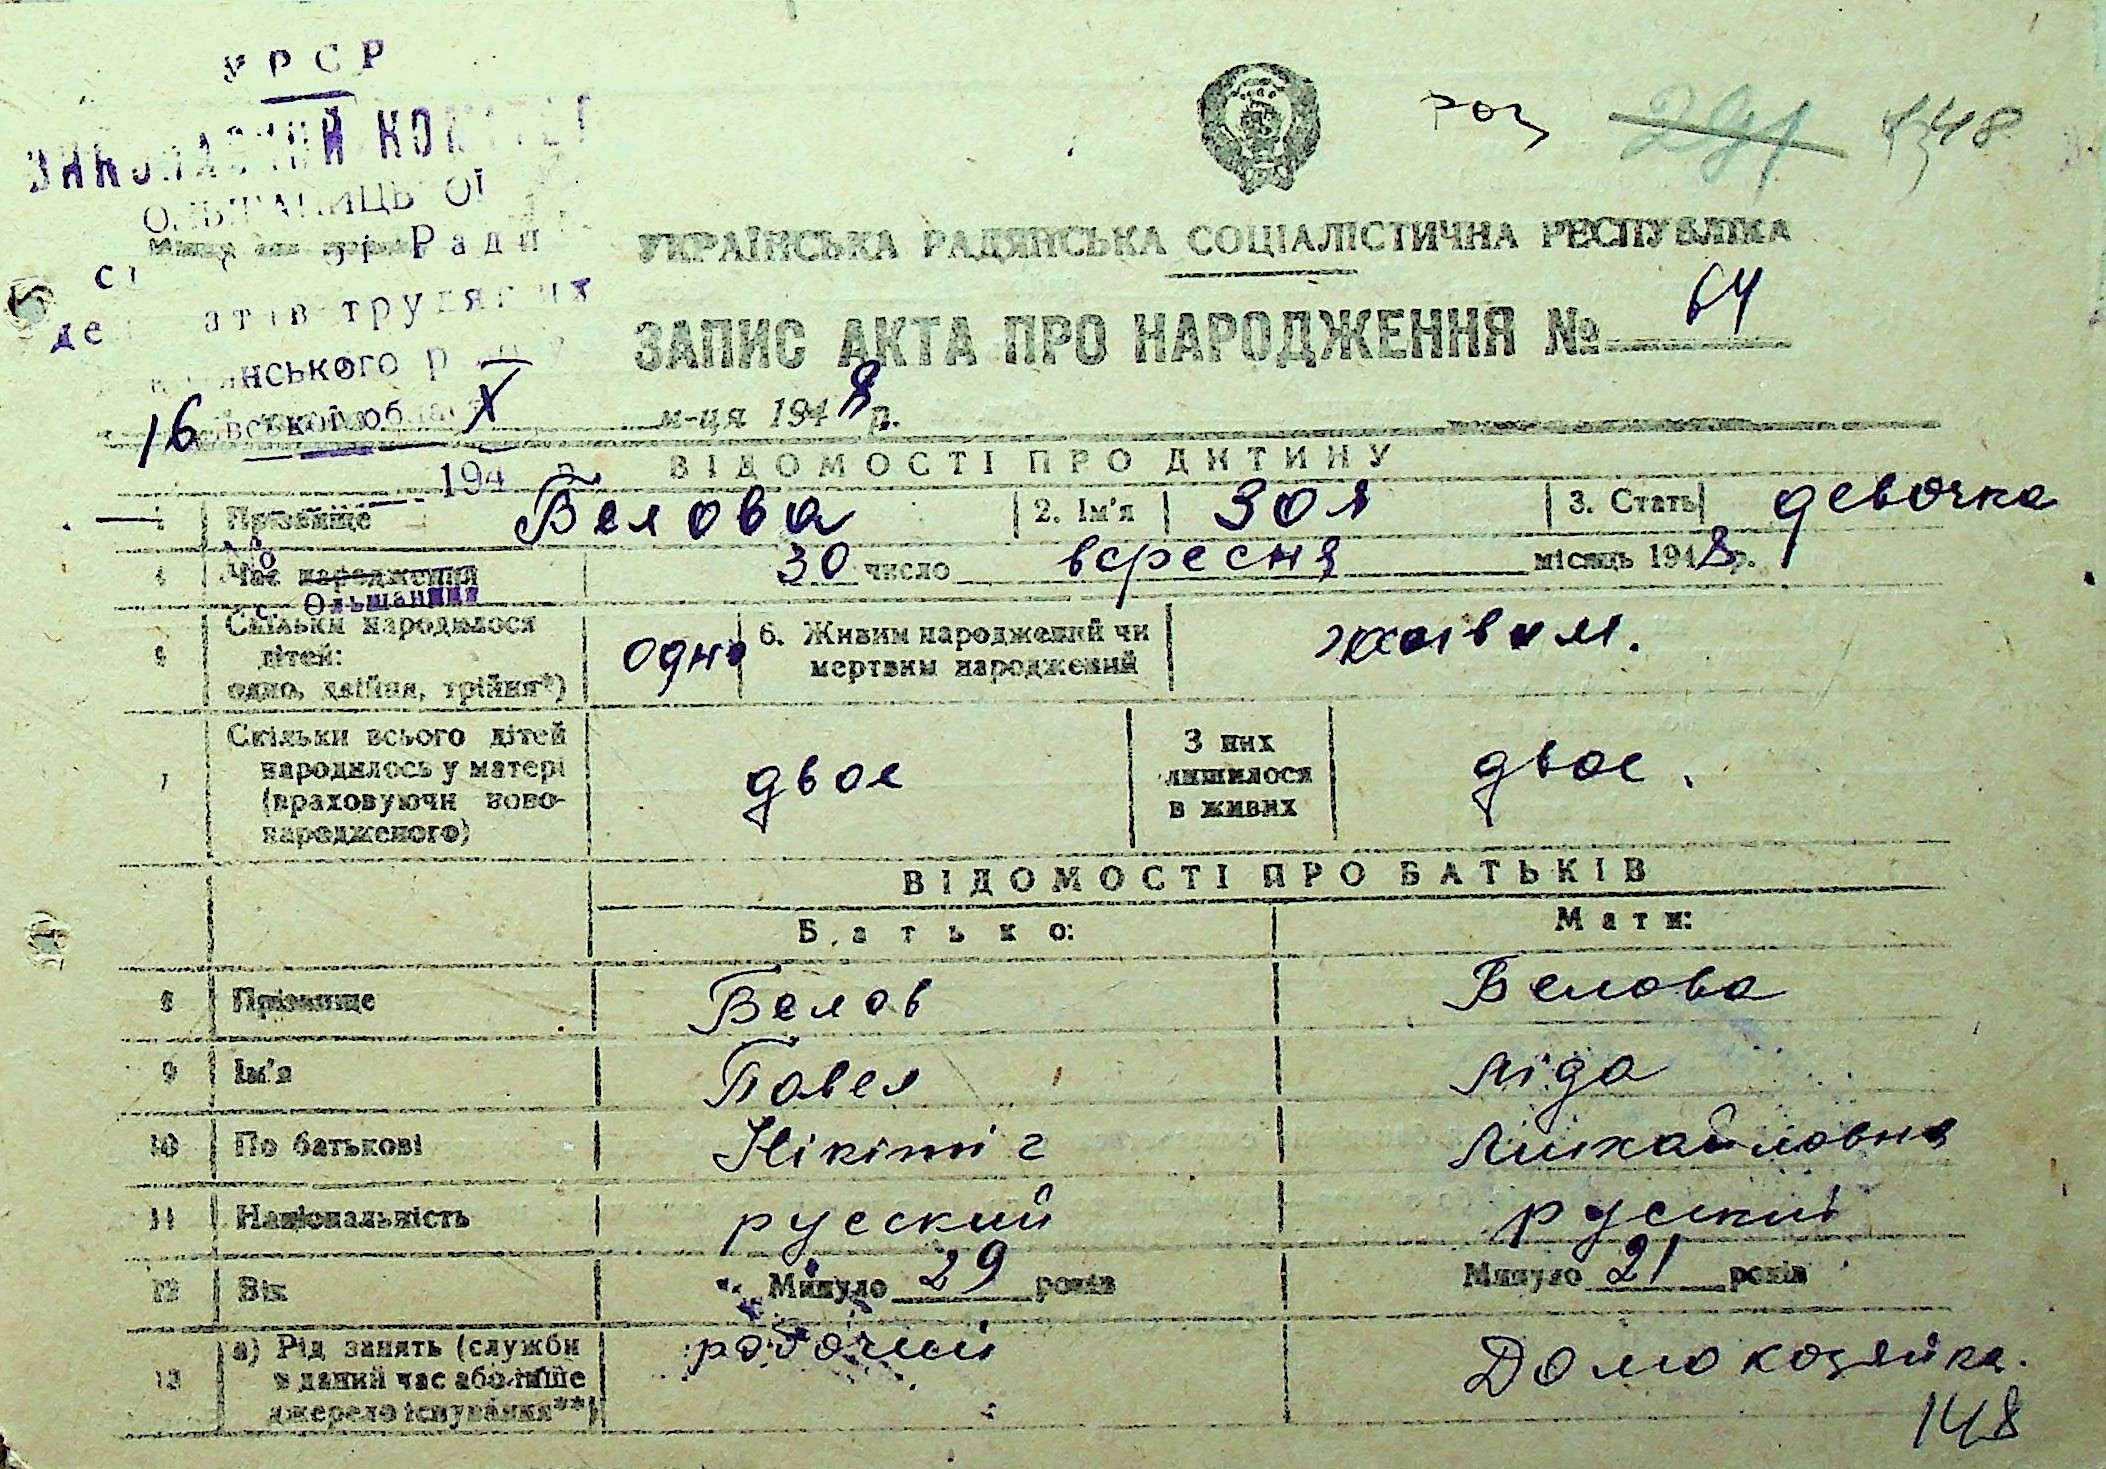 УРСР
ВИКОНАВЧИЙ КОМІТЕТ
Ради
роз 291 148
УКРАЇНСЬКА РАДЯНСЬКА СОЦІАЛІСТИЧНА РЕСПУБЛІКА
ЗАПИС АКТА ПРО НАРОДЖЕННЯ № 64
16 X м-ця 1948 р.
194
ВІДОМОСТІ ПРО ДИТИНУ
1 Прізвище Белова 2. Ім'я Зоя 3. Стать девочка
4 Час народження 30 число вересня місяць 1948 р.
с. Ольшаниця
5 Скільки народилося дітей: одно, двійня, трійня*) одно 6. Живим народжений чи мертвим народжений живим.
7 Скільки всього дітей народилось у матері (враховуючи новонародженого) двое З них лишилося в живих двое.
ВІДОМОСТІ ПРО БАТЬКІВ
Батько: Мати:
8 Прізвище Белов Белова
9 Ім'я Павел Ліда
10 По батькові Нікітіч Михайловна
11 Національність русский руский
12 Вік Минуло 29 років Минуло 21 років
13 а) Рід занять (служби в даний час або інше джерело існування**) робочий Домохозяйка.
148